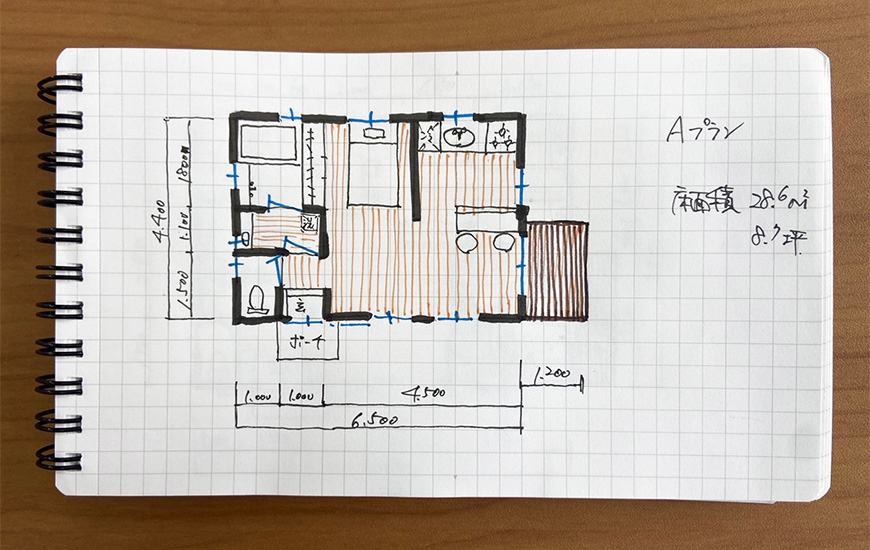 Aプラン
床面積 28.6㎡
8.7坪
4.400
1.800
1.100
1.500
洗
玄
ポーチ
1.200
1.000
1.000
4.500
6.500